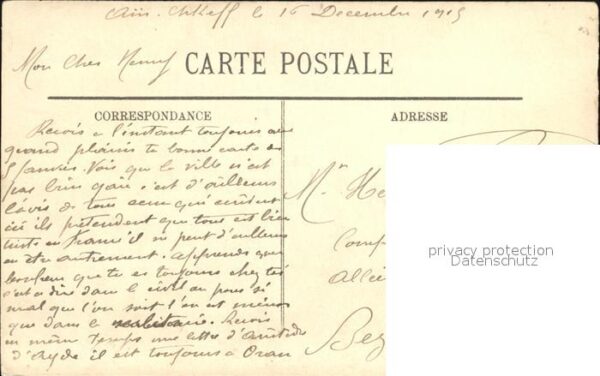 le 16 Decembre 1915
Mon cher
CARTE POSTALE
CORRESPONDANCE
ADRESSE
Recois a l'instant toujours avec
grand plaisir ta bonne carte du
Vois que la ville n'est
pas bien gaie c'est d'ailleurs
l'avis de tous ceux qui
ici ils prétendent que tous est bien
triste en France il ne peut d'ailleurs
en être autrement. Apprends que
bonheur que tu es toujours chez toi
c'est a dire dans le civil au pour si
mal que l'on soit l'on est mieux
que dans le militaire. Recois
en même temps une lettre d'Aristide
d'Ayde il est toujours à Oran
Mr He
Comp
Bez
privacy protection
Datenschutz